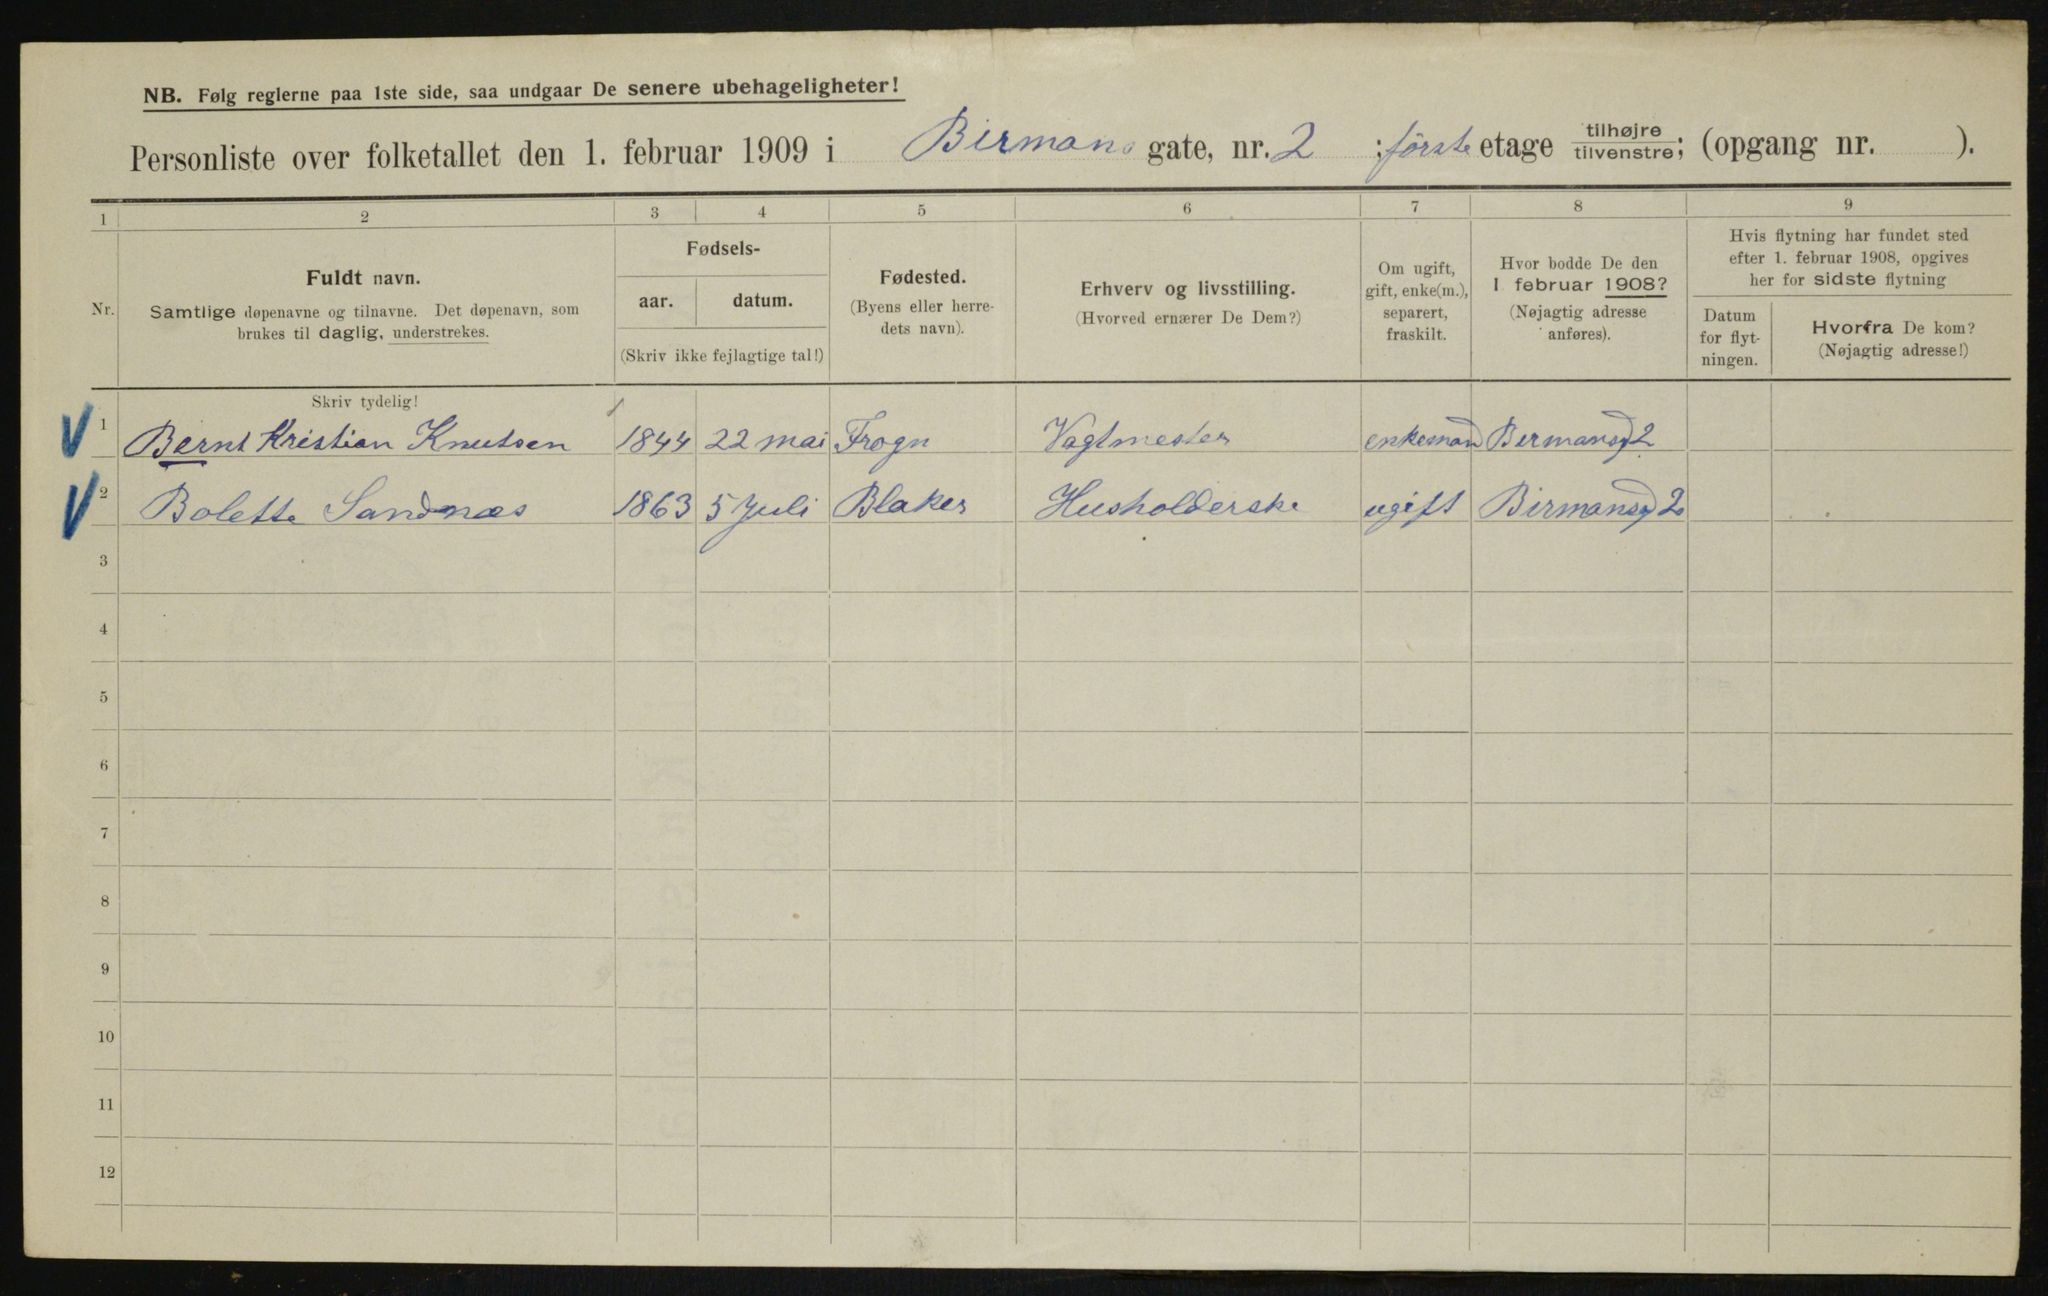 NB. Følg reglerne paa 1ste side, saa undgaar De senere ubehageligheter!
Personliste over folketallet den 1. februar 1909 i Birmans gate, nr. 2 : förste etage tilhøjre/tilvenstre; (opgang nr. ).
1 2 3 4 5 6 7 8 9
Nr.
Fuldt navn.
Samtlige døpenavne og tilnavne. Det døpenavn, som
brukes til daglig, understrekes.
Fødsels-
aar. datum.
(Skriv ikke fejlagtige tal!)
Fødested.
(Byens eller herre-
dets navn).
Erhverv og livsstilling.
(Hvorved ernærer De Dem?)
Om ugift,
gift, enke(m.),
separert,
fraskilt.
Hvor bodde De den
1 februar 1908?
(Nøjagtig adresse
anføres).
Hvis flytning har fundet sted
efter 1. februar 1908, opgives
her for sidste flytning
Datum
for flyt-
ningen.
Hvorfra De kom?
(Nøjagtig adresse!)
Skriv tydelig!
1 Bernt Kristian Knutsen 1844 22 mai Frogn Vagtmester enkemand Birmansg 2
2 Bolette Sandnæs 1863 5 Juli Blaker Husholderske ugift Birmansg 2
3
4
5
6
7
8
9
10
11
12